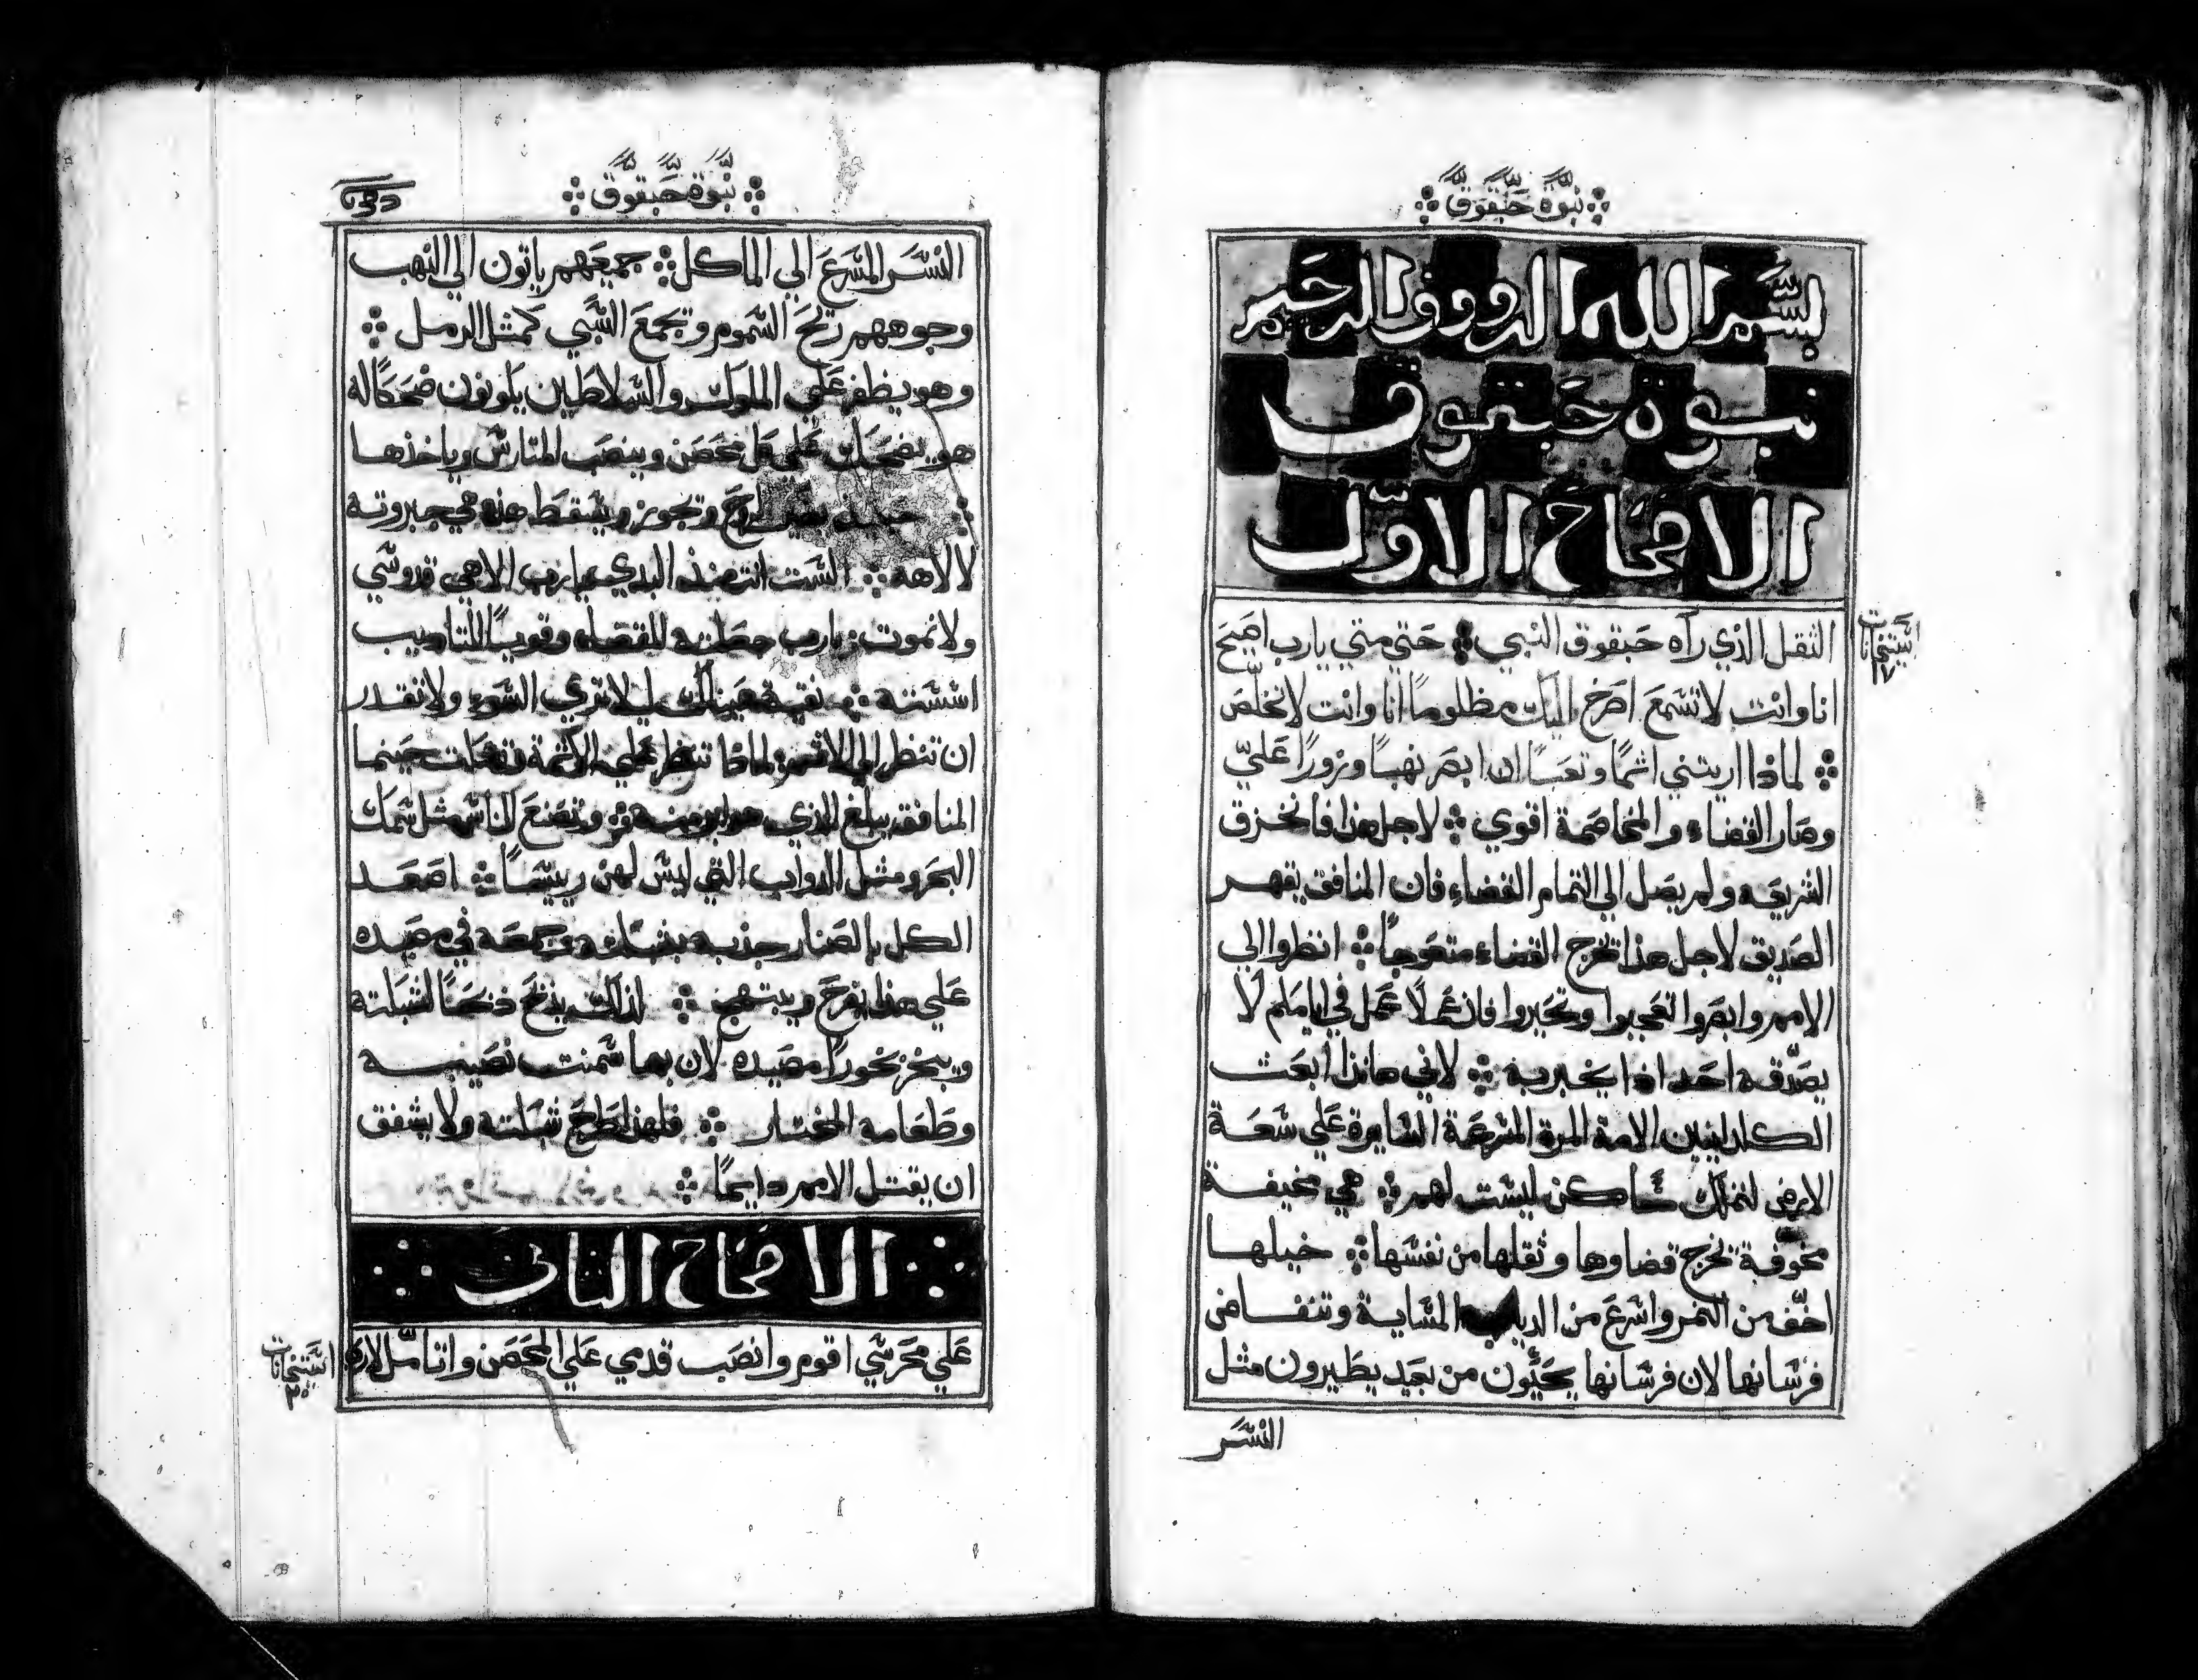 نبوة حبقوق
بسم الله الرووف الرحيم
نبوة حبقوق
الاصحاح الاول
الثقل الذي رآه حبقوق النبي حتي متي يارب اصيح
انا وانت لا تسمع اصرخ اليك مظلوما انا وانت لا تخلص
لماذا اريتني اثما وتعبا ان ابصر نهبا وزورا علي
وصار القضاء والمخاصمة اقوي لاجل هذا فانخزق
الشريعه ولم يصل الي التمام القضاء فان المنافق يقهر
الصديق لاجل هذا تخرج القضاء متعوجا انظروا الي
الامم وابصروا تعجبوا وتحيروا فان عملا عمل في ايامكم لا
يصدقه احد اذا يخبر به لاني هانذا ابعث
الكلدانيين الامة المرة المسرعة السايرة علي سعة
الارض لتمتلك مساكن ليست لهم هي مخيفة
مخوفة تخرج قضاوها وثقلها من نفسها خيلها
اخف من النمر واسرع من الدياب المسايية وتنفاض
فرسانها لان فرسانها يجيون من بعيد يطيرون مثل
النسر
نبوة حبقوق
النسر المسرع الي الماكل جميعهم ياتون الي النهب
وجوههم ريح السموم وتجمع السبي كمثل الرمل
وهو يظفر علي الملوك والسلاطين يكونون ضحكا له
هو يضحك علي كل محصن وينصب المتارس وياخذها
الروح وتجوز ويسقط هذه هي جبروته
لالاهه الست انت منذ البدي يارب الاهي قدوسي
ولا نموت يارب جعلته للقضاء وقويا للتاديب
اسسته نقية عيناك ليلا تري السوء ولا تقدر
ان تنظر الي الاثم لماذا تنظر علي الاثمة تسكت حينما
المنافق يبلع الذي هو ابر منه وتصنع الناس مثل سمك
البحر ومثل الدواب التي ليس لهن ريسا اصعد
الكل بالصنار جذبه بشبكته وجمعه في مصيده
علي هذا يفرح ويبتهج لذلك يذبح ذبحا لشبكته
ويبخر بخورا مصيده لان بهما سمنت نصيبه
وطعامه المختار فلهذا يطرح شبكته ولا يشفق
ان يقتل الامم دايما
الاصحاح الثاني
علي محرسي اقوم وانصب قدمي علي المحصن واتامل لاري
استنخانات
٢٠